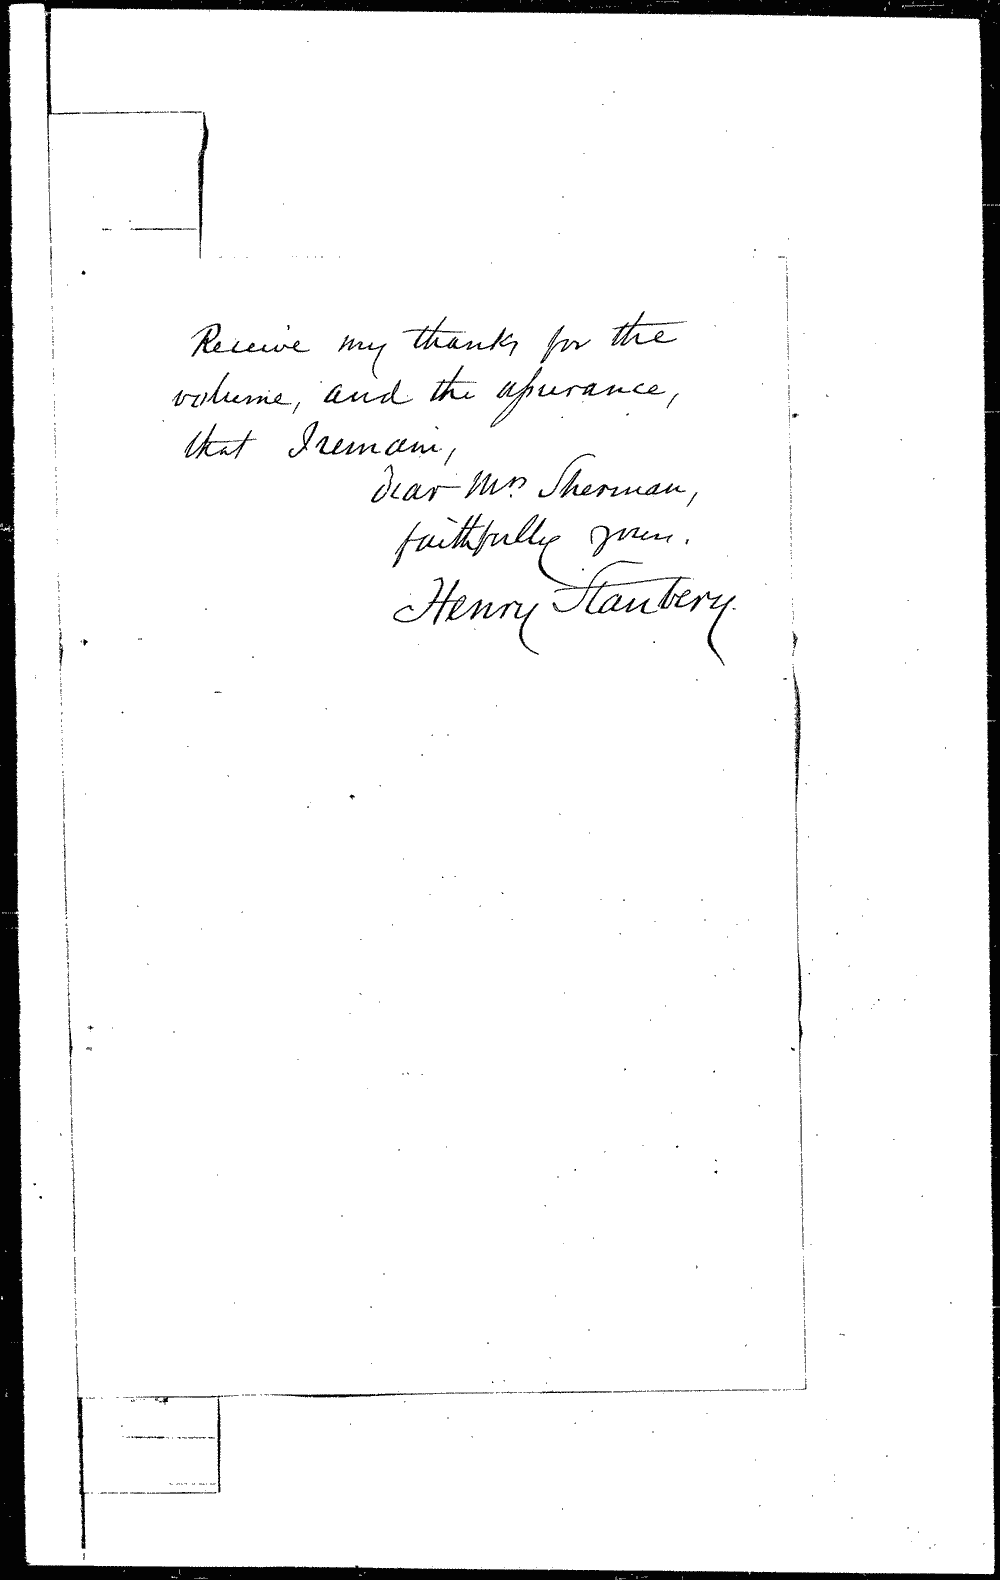 Receive my thanks for the
volume, and the assurance,
that I remain,
Dear Mrs. Sherman,
faithfully yours.
Henry Stanbery.